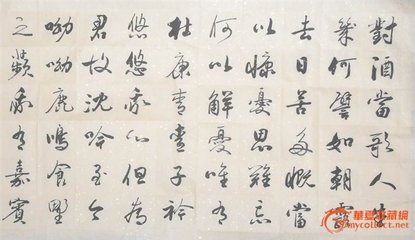 對酒當歌人生
幾何譬如朝露
去日苦多慨當
以慷憂思難忘
何以解憂唯有
杜康青青子衿
悠悠我心但為
君故沈吟至今
呦呦鹿鳴食野
之蘋我有嘉賓
華夏收藏網
mycollect.net